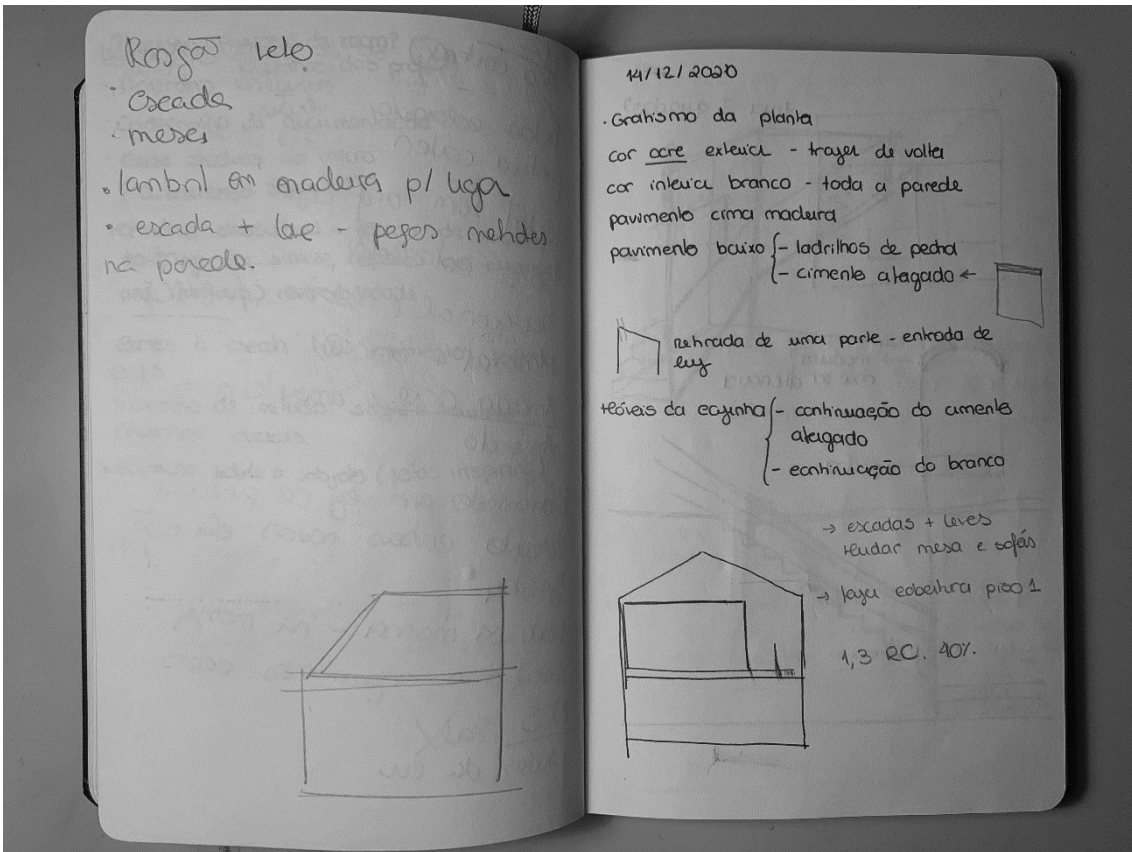 Rasgão
· escada
· meses
· lambril em madeira p/ ligar
· escada + - peças
na parede.
14/12/2020
· Grafismo da planta
cor ocre exterior - trazer de volta
cor interior branco - toda a parede
pavimento cima madeira
pavimento baixo - ladrilhos de pedra
- cimento afagado ←
retirada de uma parte - entrada de
luz
Móveis da cozinha - continuação do cimento
afagado
- continuação do branco
→ escadas + leves
mudar mesa e sofás
→ fazer cobertura piso 1
1,3 RC. 40%.